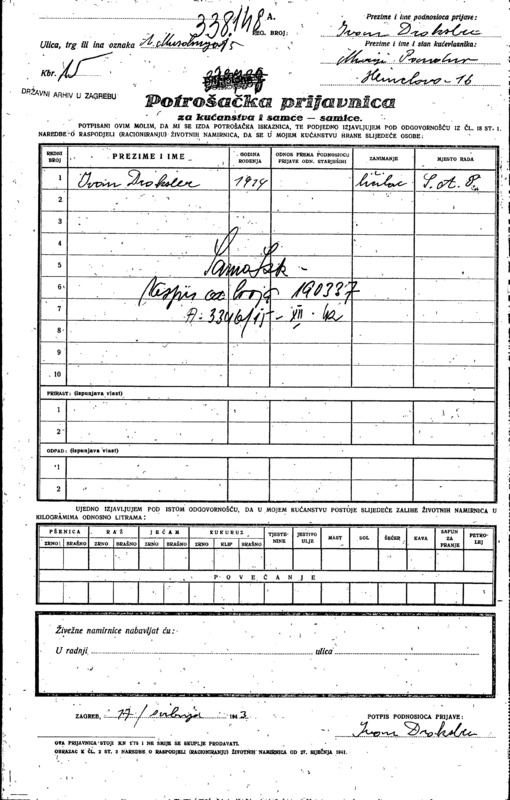 338148 A.
REG. BROJ:
Prezime i ime podnosioca prijave:
Ivan Drakulec
Ulica, trg ili ina oznaka A. 5
Prezime i ime i stan kućevlasnika:
Kbr.
16
DRŽAVNI ARHIV U ZAGREBU
Potrošačka prijavnica
za kućanstva i samce — samice.
POTPISANI OVIM MOLIM, DA MI SE IZDA POTROŠAČKA ISKAZNICA, TE PODJEDNO IZJAVLJUJEM POD ODGOVORNOŠĆU IZ ČL. 18 ST. 1.
NAREDBE O RASPODJELI (RACIONIRANJU) ŽIVOTNIH NAMIRNICA, DA SE U MOJEM KUĆANSTVU HRANE SLIJEDEĆE OSOBE:
REDNI BROJ PREZIME I IME GODINA ROĐENJA ODNOS PREMA PODNOSIOCU PRIJAVE ODN. STARJEŠINI ZANIMANJE MJESTO RADA
1 Ivan 1914
2
3
4
5
6 190337
7
8
9
10
PRIRAST: (ispunjava vlast)
1
2
OTPAD: (ispunjava vlast)
1
2
UJEDNO IZJAVLJUJEM POD ISTOM ODGOVORNOŠĆU, DA U MOJEM KUĆANSTVU POSTOJE SLIJEDEĆE ZALIHE ŽIVOTNIH NAMIRNICA U
KILOGRAMIMA ODNOSNO LITRAMA:
PŠENICA RAŽ JEČAM KUKURUZ TJESTENINE JESTIVO ULJE MAST SOL ŠEĆER KAVA SAPUN ZA PRANJE PETROLEJ
ZRNO BRAŠNO ZRNO BRAŠNO ZRNO BRAŠNO ZRNO KLIP BRAŠNO
POVEĆANJE
Živežne namirnice nabavljat ću:
U radnji ulica
ZAGREB, 17/ 1943
POTPIS PODNOSIOCA PRIJAVE:
Ivan
OVA PRIJAVNICA STOJI KN 1.75 I NE SMIJE SE SKUPLJE PRODAVATI.
OBRAZAC K ČL. 2 ST. 2 NAREDBE O RASPODJELI (RACIONIRANJU) ŽIVOTNIH NAMIRNICA OD 27. SIJEČNJA 1941.